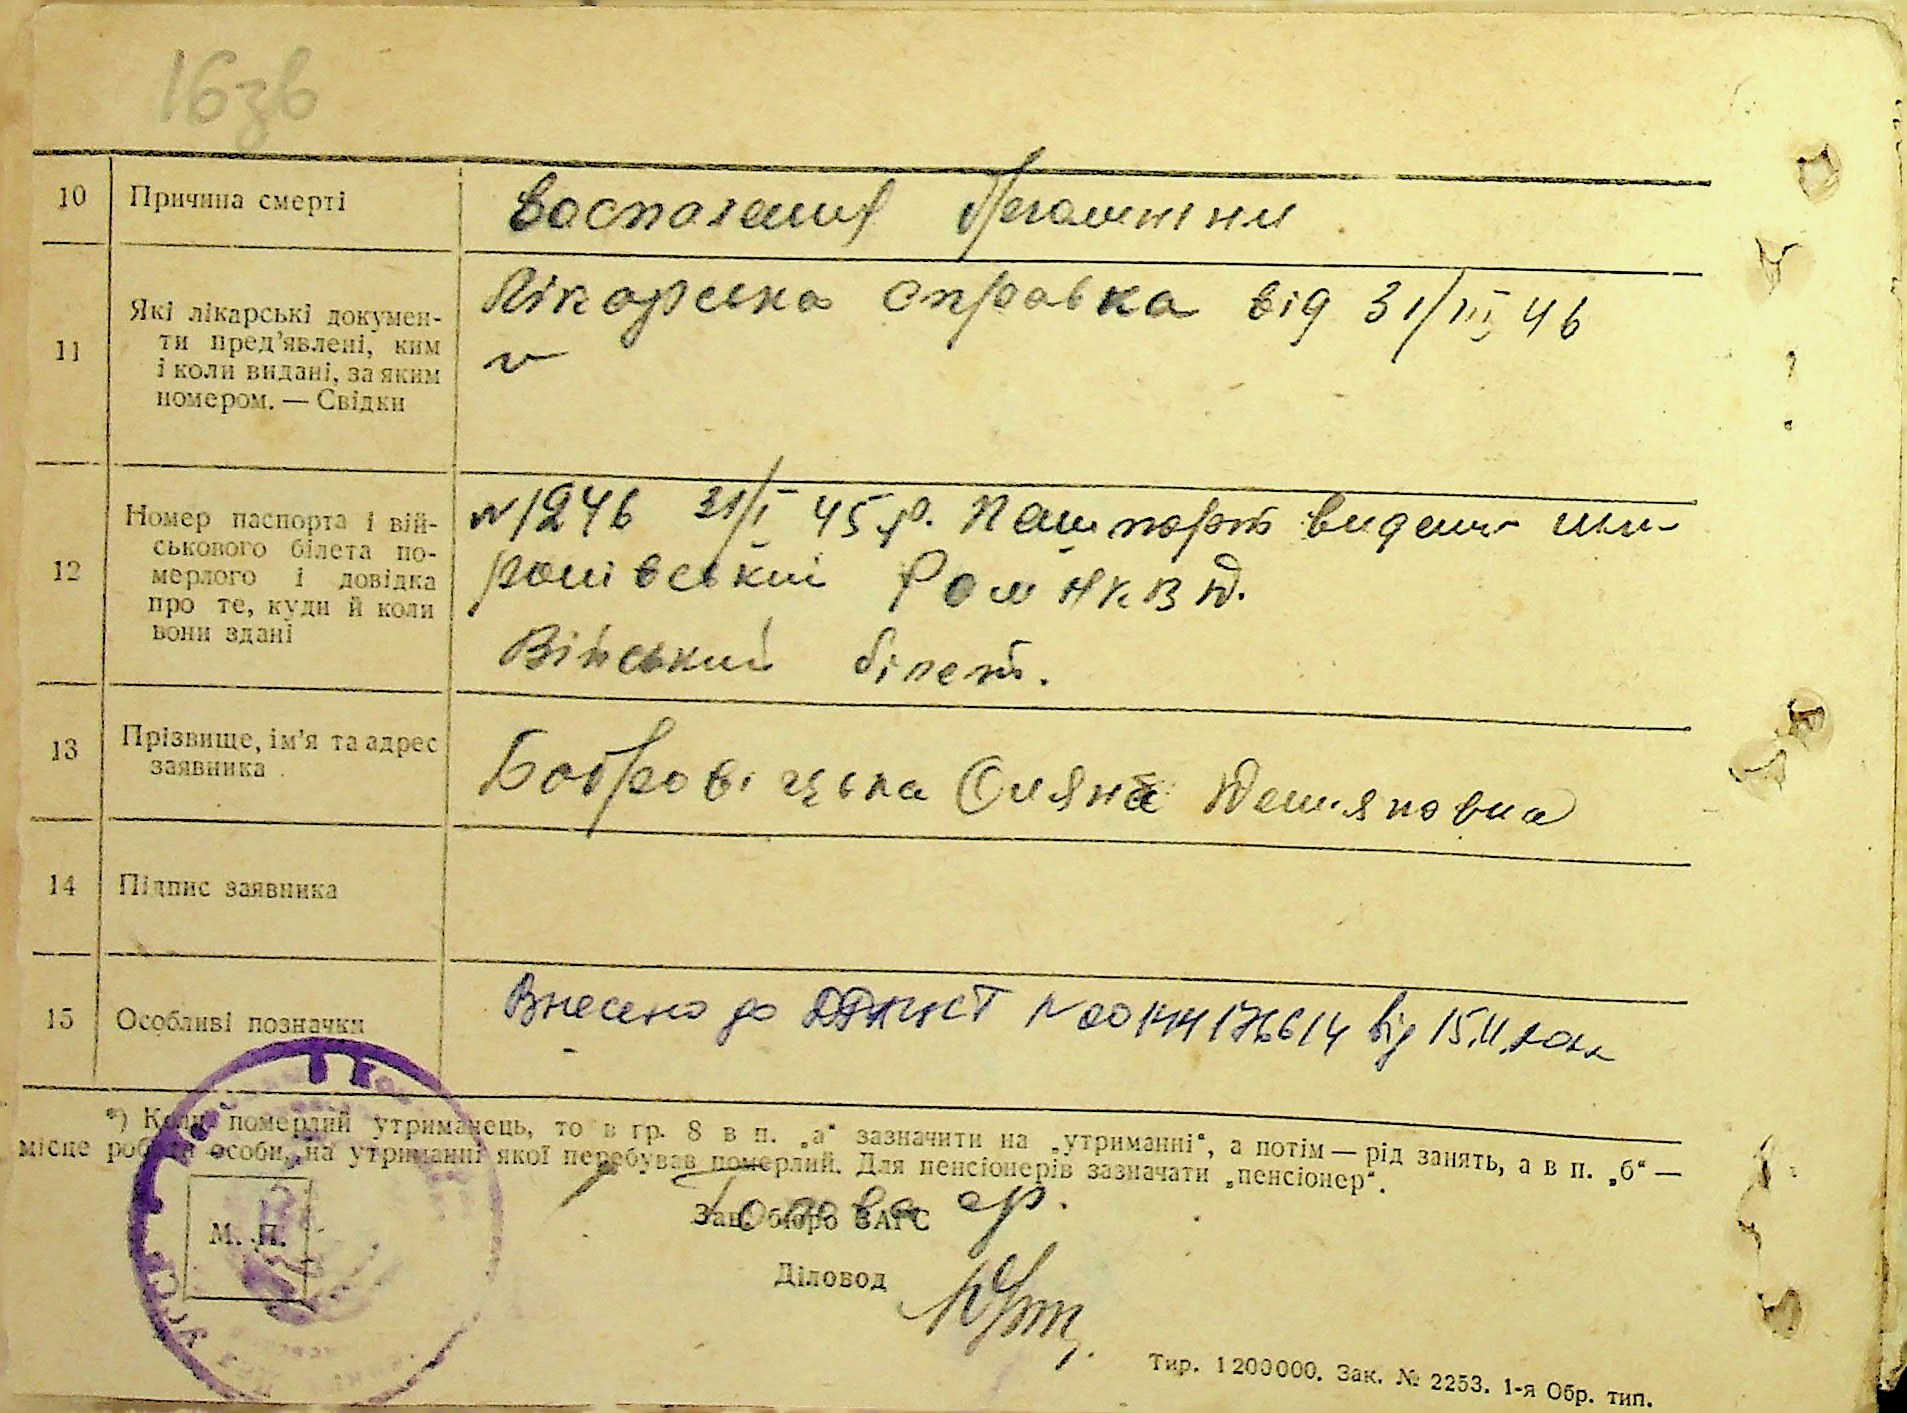 16зв
10 Причина смерті
Воспаления
11 Які лікарські докумен-
ти пред'явлені, ким
і коли видані, за яким
номером. — Свідки
Лікарська справка від 31/III 46
12 Номер паспорта і вій-
ськового білета по-
мерлого і довідка
про те, куди й коли
вони здані
№1246 31/I 45 р. Пашпорт видано
НКВД.
Війський білет.
13 Прізвище, ім'я та адрес
заявника
Бобровіцька Демяновна
14 Підпис заявника
15 Особливі позначки
Внесено до № 00144176614 від 15.11.
*) Коли померлий утриманець, то в гр. 8 в п. „а“ зазначити на „утриманні“, а потім — рід занять, а в п. „б“ —
місце роботи особи, на утриманні якої перебував померлий. Для пенсіонерів зазначати „пенсіонер“.
Зав. бюро ЗАГС
Голова
М. П.
Діловод
Тир. 1200000. Зак. № 2253. 1-я Обр. тип.